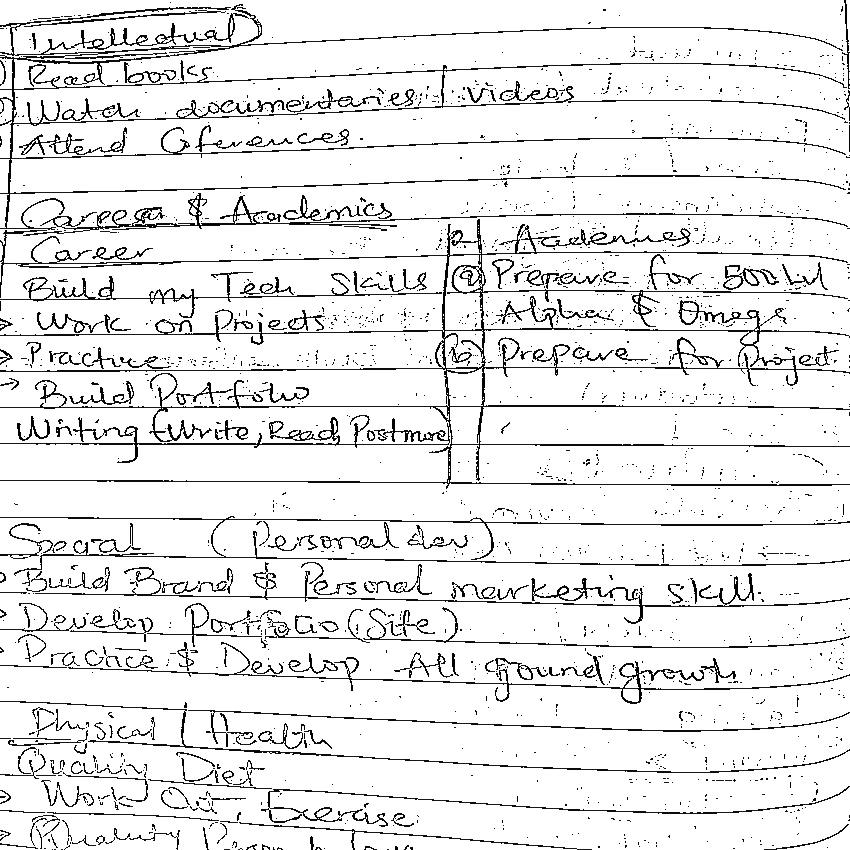 Intellectual
Read books
Watch documentaries / videos
Attend Cferences.
Career & Academics
Career
Build my Tech Skills
→ Work on Projects
→ Practice
→ Build Portfolio
Writing (Write, Read, Post more)
2. Academics
(a) Prepare for 500 Lvl
Alpha & Omega
(b) Prepare for Project
Special (Personal dev)
Build Brand & Personal marketing skill.
Develop Portfolio (Site)
Practice & Develop All ground growth
Physical / Health
Quality Diet
→ Work Out, Exercise
Quality